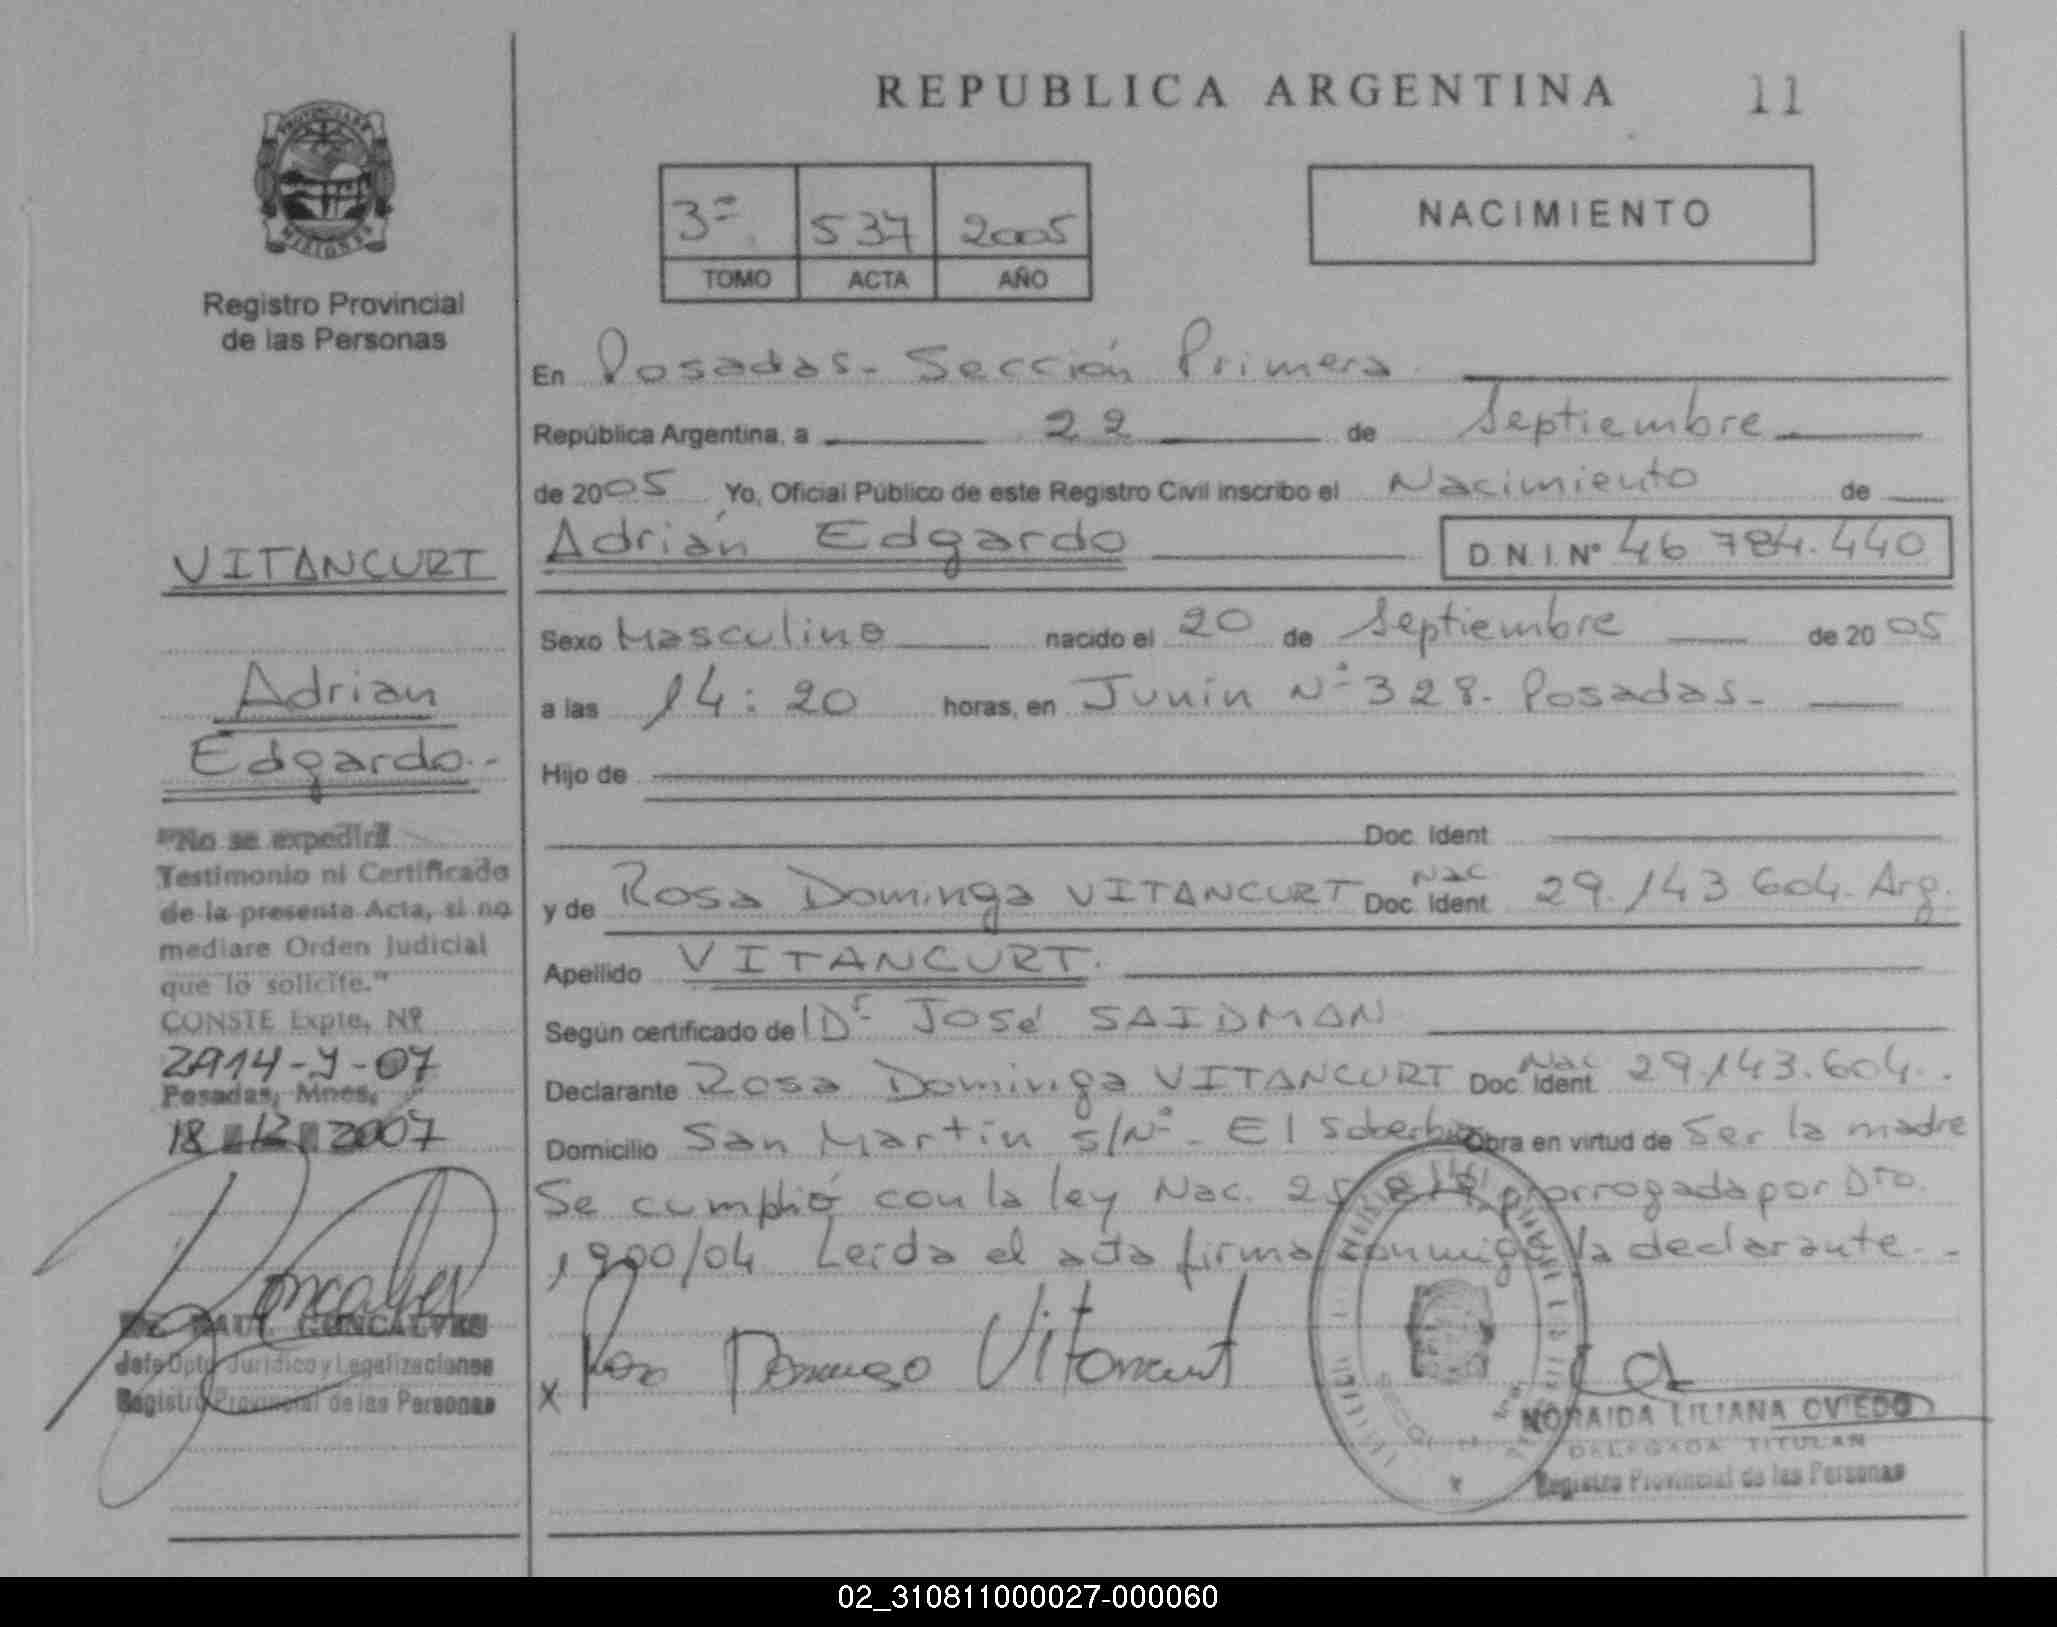 REPUBLICA ARGENTINA 11
PROVINCIA DE
MISIONES
Registro Provincial
de las Personas
3º 537 2005
TOMO ACTA AÑO
NACIMIENTO
En Posadas - Sección Primera
República Argentina, a 22 de Septiembre
de 2005 Yo, Oficial Público de este Registro Civil inscribo el Nacimiento de
Adrián Edgardo D.N.I. Nº 46.784.440
Sexo Masculino nacido el 20 de Septiembre de 2005
a las 14:20 horas, en Junin Nº 328. Posadas-
Hijo de
Doc. Ident
y de Rosa Dominga VITANCURT Doc. Nac. Ident 29.143.604. Arg.
Apellido VITANCURT.
Según certificado de Dr. José SAIDMAN
Declarante Rosa Dominga VITANCURT Doc. Nac. Ident. 29.143.604.
Domicilio San Martín s/Nº - El Soberbio Obra en virtud de Ser la madre
Se cumplió con la ley Nac. prorrogada por Dto.
1900/04 Leída el acta firma conmigo la declarante.-
x Rosa Domingo Vitancurt
NORAIDA LILIANA OVIEDO
DELEGADA TITULAR
Registro Provincial de las Personas
VITANCURT
Adrian
Edgardo.-
"No se expedirá
Testimonio ni Certificado
de la presente Acta, si no
mediare Orden Judicial
que lo solicite."
CONSTE Expte. Nº
2914-Y-07
Posadas, Mnes.
18 12 2007
Goncalves
RAUL GONCALVES
Jefe Dpto Jurídico y Legalizaciones
Registro Provincial de las Personas
02_310811000027-000060